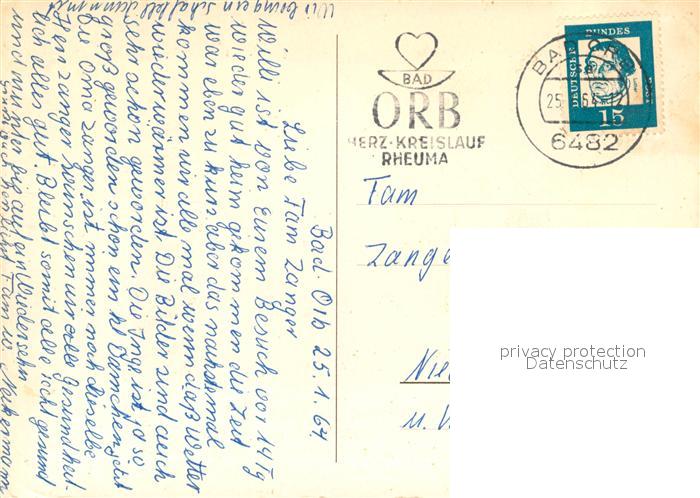 Bad Orb 25.1.64
Liebe Fam Zanger
Willi ist von Eurem Besuch vor 14 Tg
wieder gut heim gekommen die Zeit
war eben zu kurz aber das nächstemal
kommen wir alle mal wenn das Wetter
wieder wärmer ist. Die Bilder sind auch
sehr schön geworden. Die Inge ist ja so
groß geworden schon ein kl Dämchen, jetzt
die Oma Zanger ist immer noch dieselbe
Zanger wünschen wir alle Gesundheit
alles gut. Bleibt somit alle recht gesund
und munter bis auf ein Wiedersehn
Fam W.
Wir
BAD
ORB
HERZ-KREISLAUF
RHEUMA
BAD ORB
25.
6482
DEUTSCHE BUNDES
15
Fam
Zange
Nie
u.
privacy protection
Datenschutz